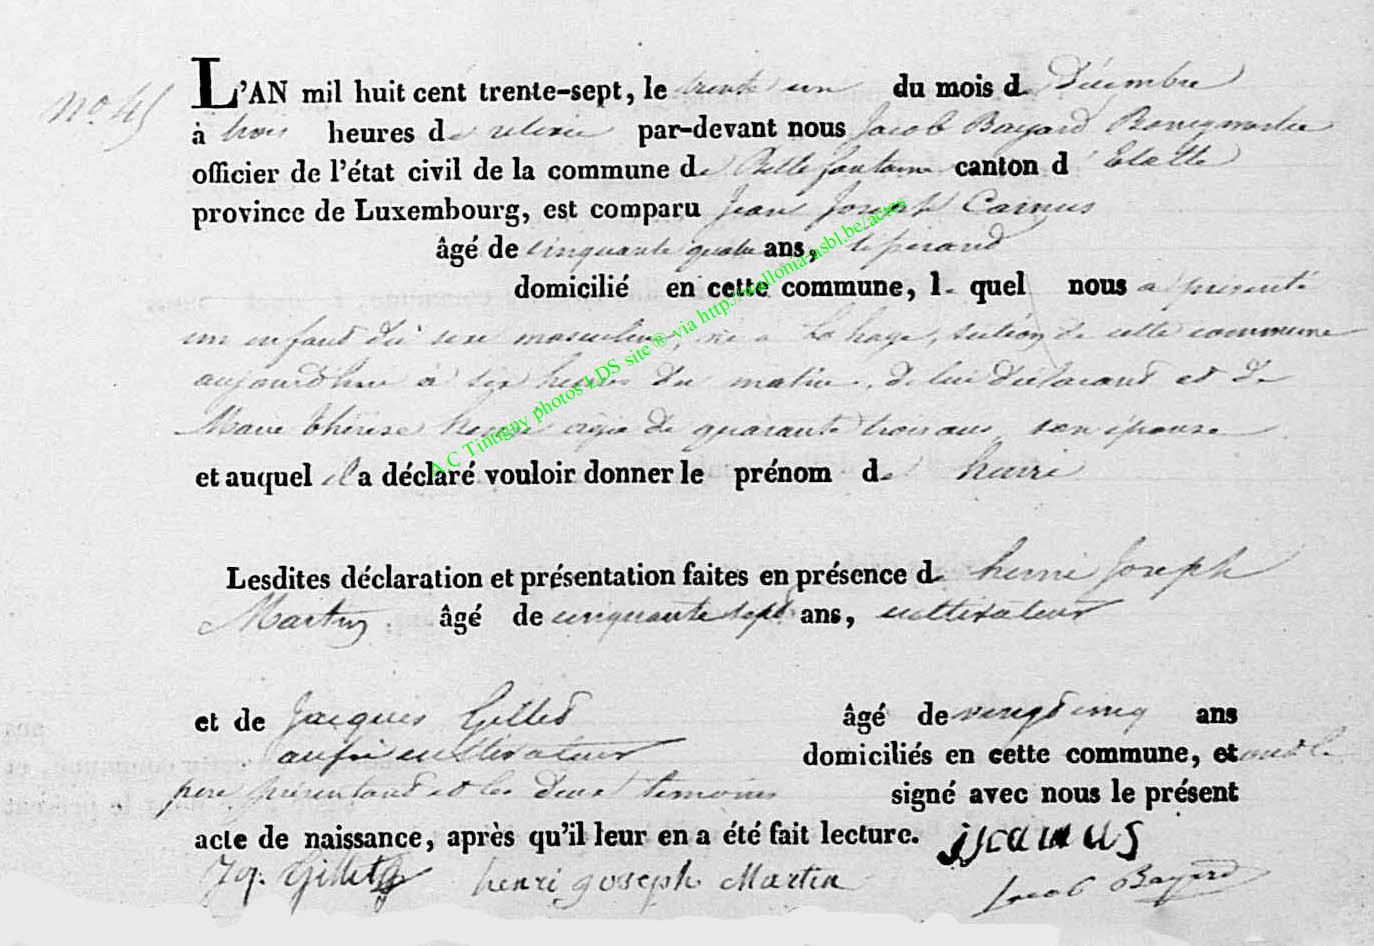 no. 45
L'AN mil huit cent trente-sept, le trente un du mois de Décembre
à trois heures de relevée par-devant nous Jacob Bayard Bourgmestre
officier de l'état civil de la commune de Bellefontaine canton d'Etalle
province de Luxembourg, est comparu Jean Joseph Camus
âgé de cinquante quatre ans,
domicilié en cette commune, lequel nous a présenté
un enfant du sexe masculin, né a La hage, section de cette commune
aujourdhui à six heures du matin, de lui déclarant et de
Marie thérèse agée de quarante trois ans son épouse
et auquel il a déclaré vouloir donner le prénom de henri
Lesdites déclaration et présentation faites en présence de henri Joseph
Martin, âgé de cinquante sept ans, cultivateur
et de Jacques Gillet âgé de vingt cinq ans
aussi cultivateur domiciliés en cette commune, et ont le
pere présentant et les deux temoins signé avec nous le présent
acte de naissance, après qu'il leur en a été fait lecture. jjcamus
Jq. Gillet henri joseph Martin Jacob Bayard
A C Tintigny photos LDS site ® via http://wallonia-asbl.be/actes